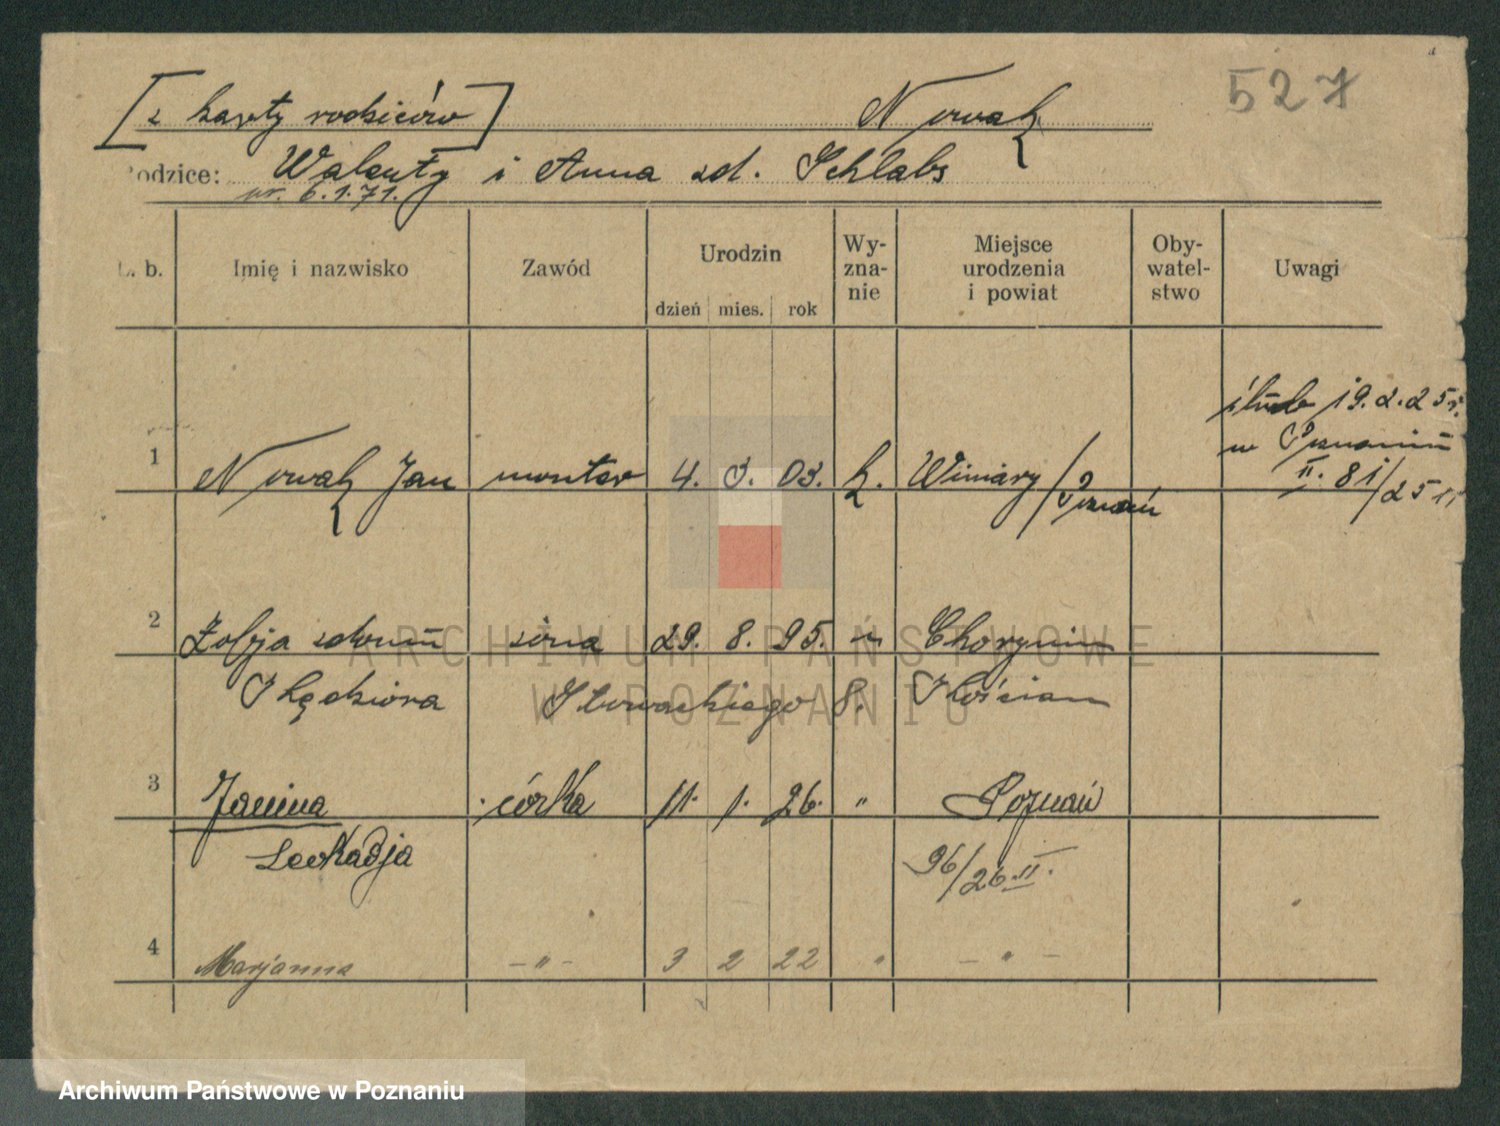 527
[z karty rodziców] Nowak
Rodzice: Walenty i Anna zd. Schlabs
ur. 6.1.71.
L. b. Imię i nazwisko Zawód Urodzin Wy-zna-nie Miejsce urodzenia i powiat Oby-watel-stwo Uwagi
dzień mies. rok
ślub 19.2.25 r.
w Poznaniu
1 Nowak Jan monter 4. 3. 03. k. Winiary/Poznań II. 81/25
2 Zofja żona 29. 8. 95. " Choryń
Kędziora Słowackiego 8. Kościan
3 Janina córka 11. 1. 26. " Poznań
Leokadja 96/26 II.
4 Marjanna - " - 3 2 22 " - " -
ARCHIWUM PAŃSTWOWE
W POZNANIU
Archiwum Państwowe w Poznaniu